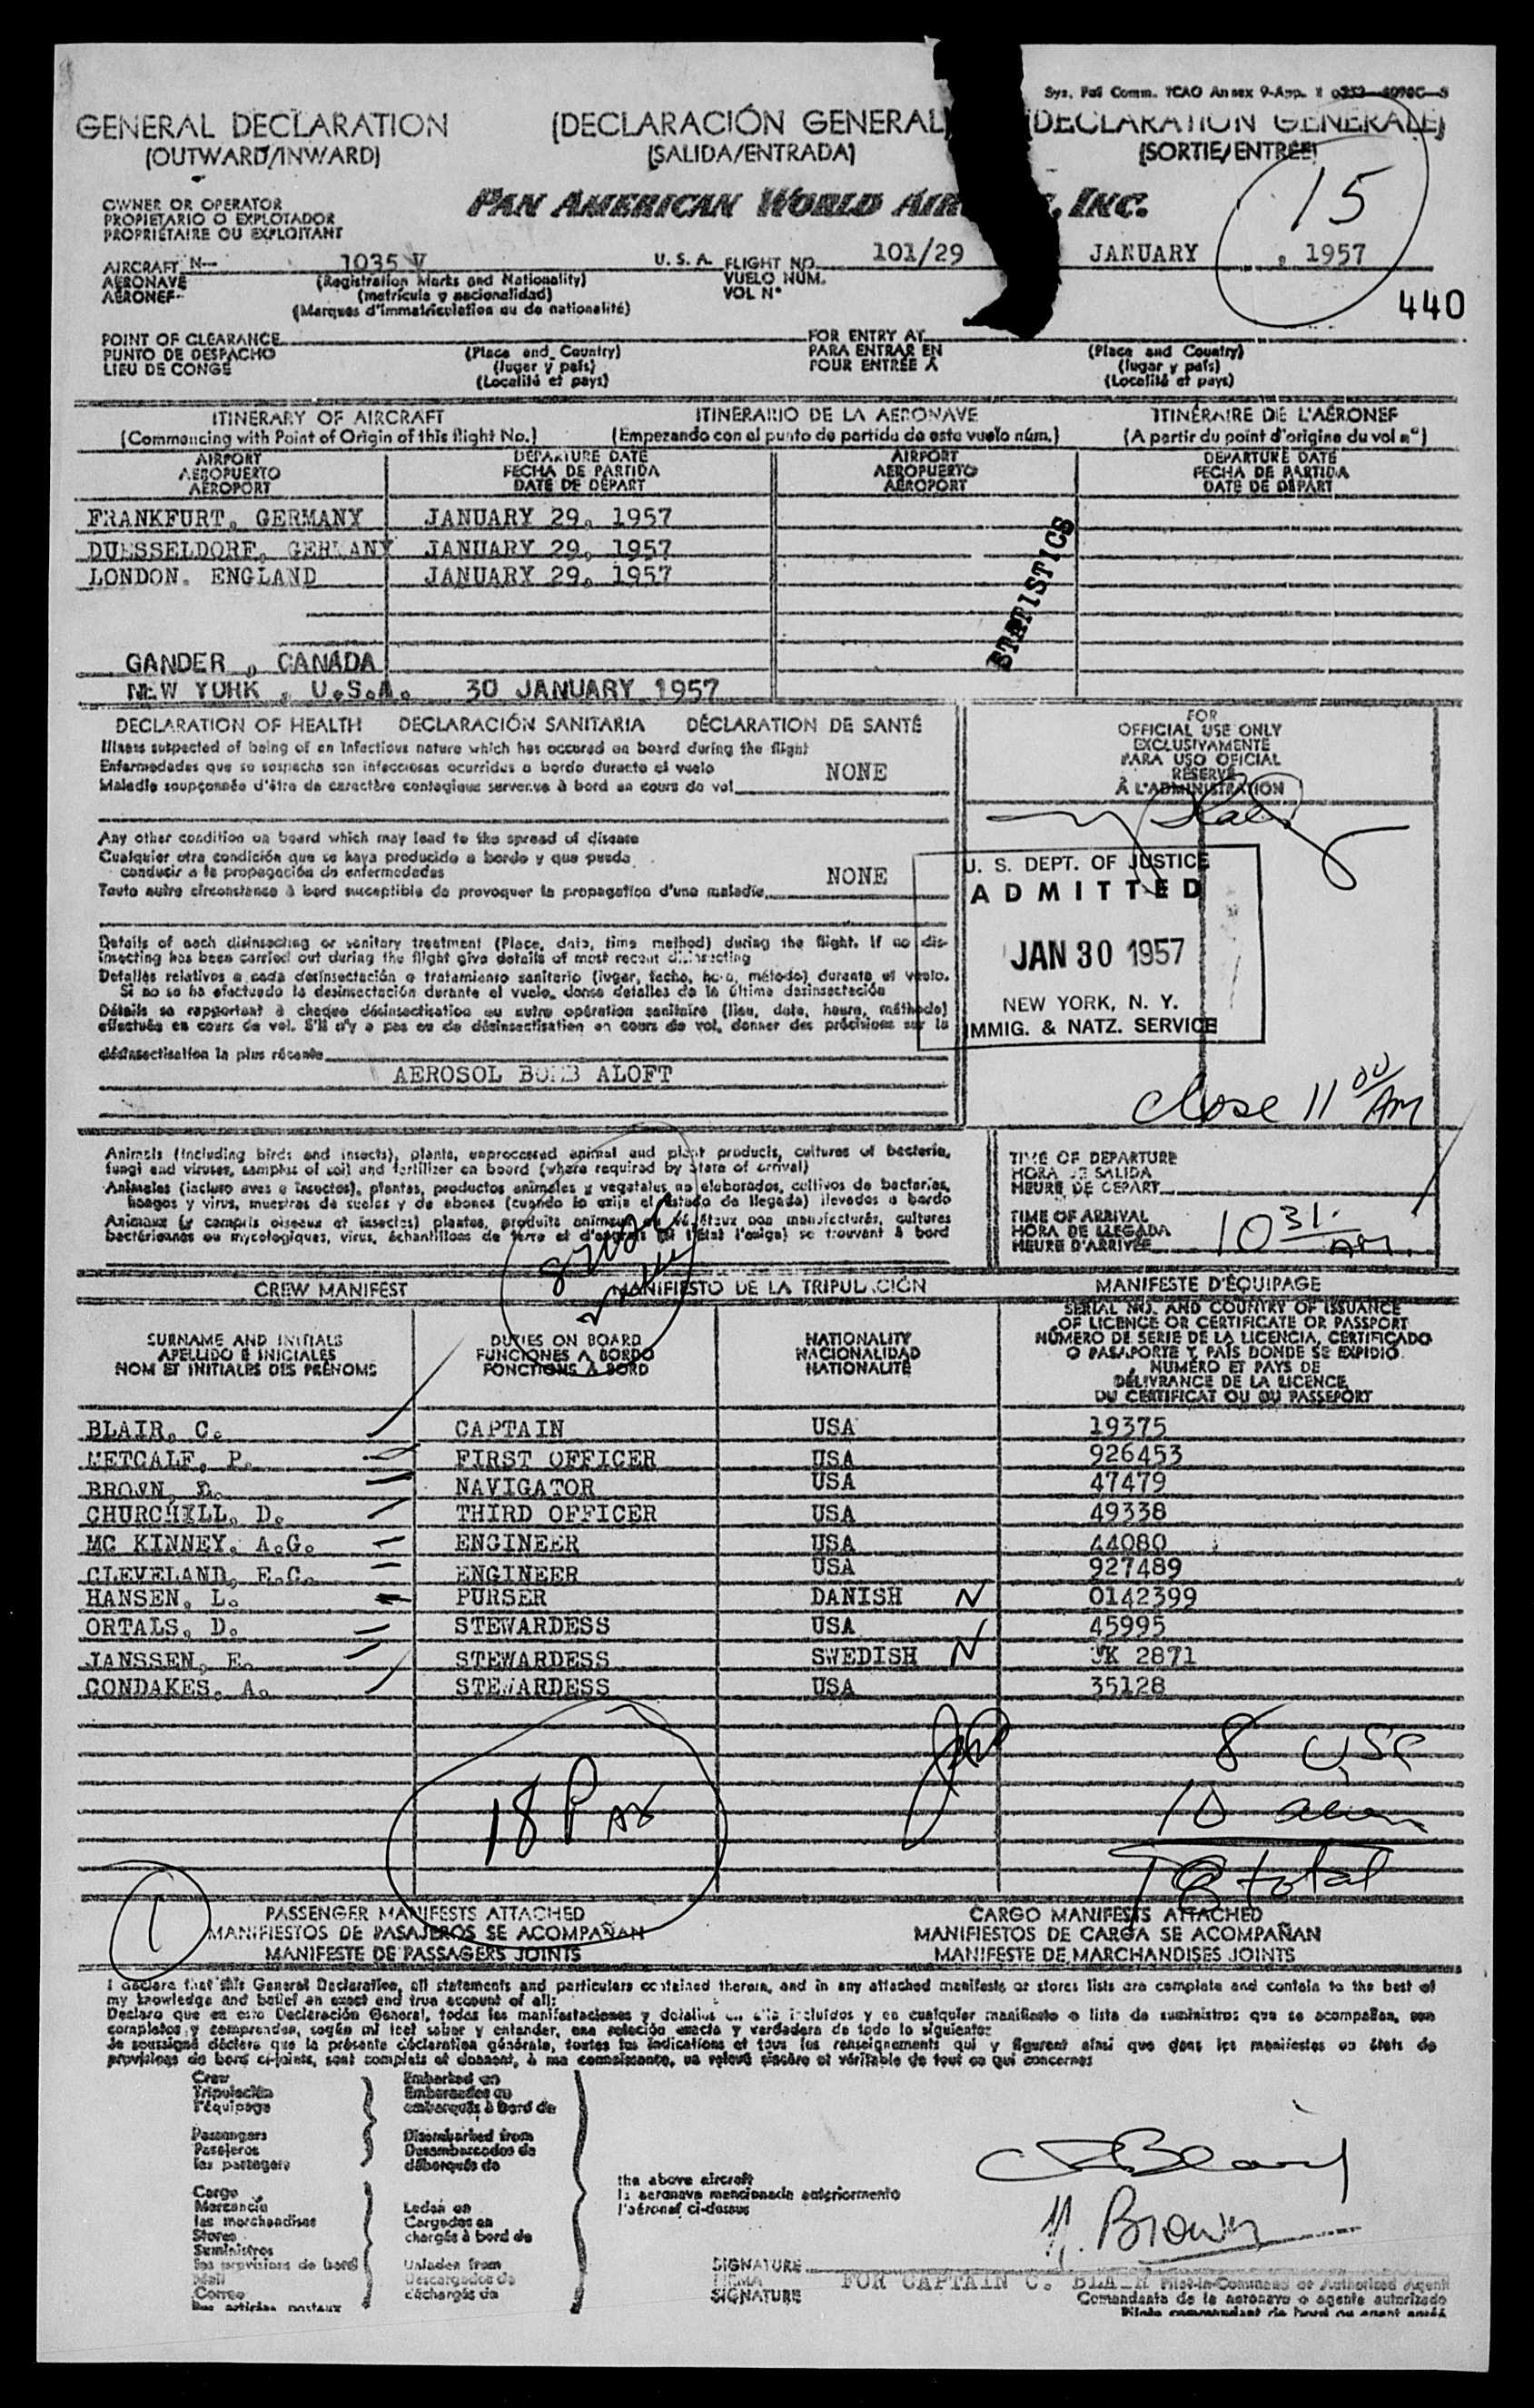 Sys. Fal Comm. ICAO Annex 9-App. 1
GENERAL DECLARATION (DECLARACIÓN GENERAL (DECLARATION GENERALE)
(OUTWARD/INWARD) (SALIDA/ENTRADA) (SORTIE/ENTREE)
15
OWNER OR OPERATOR
PROPIETARIO O EXPLOTADOR
PROPRIÉTAIRE OU EXPLOITANT
PAN AMERICAN WORLD AIR , INC.
AIRCRAFT N— 1035 V U. S. A. FLIGHT NO. 101/29 JANUARY , 1957
AERONAVE (Registration Marks and Nationality) VUELO NÚM.
AÉRONEF (matrícula y nacionalidad) VOL Nº
(Marques d'immatriculation ou de nationalité)
440
POINT OF CLEARANCE FOR ENTRY AT
PUNTO DE DESPACHO (Place and Country) PARA ENTRAR EN (Place and Country)
LIEU DE CONGÉ (lugar y país) POUR ENTRÉE À (lugar y país)
(Localité et pays) (Localité et pays)
ITINERARY OF AIRCRAFT ITINERARIO DE LA AERONAVE ITINÉRAIRE DE L'AÉRONEF
(Commencing with Point of Origin of this flight No.) (Empezando con el punto de partida de este vuelo núm.) (A partir du point d'origine du vol nº)
AIRPORT DEPARTURE DATE AIRPORT DEPARTURE DATE
AEROPUERTO FECHA DE PARTIDA AEROPUERTO FECHA DE PARTIDA
AÉROPORT DATE DE DÉPART AÉROPORT DATE DE DÉPART
FRANKFURT, GERMANY JANUARY 29, 1957
DUESSELDORF, GERMANY JANUARY 29, 1957
LONDON. ENGLAND JANUARY 29, 1957
STATISTICS
GANDER , CANADA
NEW YORK , U.S.A. 30 JANUARY 1957
DECLARATION OF HEALTH DECLARACIÓN SANITARIA DÉCLARATION DE SANTÉ
Illness suspected of being of an infectious nature which has occured on board during the flight
Enfermedades que se sospecha son infecciosas ocurridas a bordo durante el vuelo NONE
Maladie soupçonnée d'être de caractère contagieux survenue à bord en cours de vol
Any other condition on board which may lead to the spread of disease
Cualquier otra condición que se haya producido a bordo y que pueda
conducir a la propagación de enfermedades NONE
Toute autre circonstance à bord susceptible de provoquer la propagation d'une maladie
Details of each disinsecting or sanitary treatment (Place, date, time method) during the flight. If no dis-
insecting has been carried out during the flight give details of most recent disinsecting
Detalles relativos a cada desinsectación o tratamiento sanitario (lugar, fecha, hora, método) durante el vuelo.
Si no se ha efectuado la desinsectación durante el vuelo, dense detalles de la última desinsectación
Détails se rapportant à chaque désinsectisation ou autre opération sanitaire (lieu, date, heure, méthode)
effectuée en cours de vol. S'il n'y a pas eu de désinsectisation en cours de vol, donner des précisions sur la
désinsectisation la plus récente
AEROSOL BOMB ALOFT
FOR
OFFICIAL USE ONLY
EXCLUSIVAMENTE
PARA USO OFICIAL
RÉSERVÉ
À L'ADMINISTRATION
U. S. DEPT. OF JUSTICE
ADMITTED
JAN 30 1957
NEW YORK, N. Y.
IMMIG. & NATZ. SERVICE
close 11 00 AM
Animals (including birds and insects), plants, unprocessed animal and plant products, cultures of bacteria,
fungi and viruses, samples of soil and fertilizer on board (where required by State of arrival)
Animales (incluso aves e insectos), plantas, productos animales y vegetales no elaborados, cultivos de bacterias,
hongos y virus, muestras de suelos y de abonos (cuando lo exija el Estado de llegada) llevados a bordo
Animaux (y compris oiseaux et insectes) plantes, produits animaux et végétaux non manufacturés, cultures
bactériennes ou mycologiques, virus, échantillons de terre et d'engrais (si l'État l'exige) se trouvant à bord
TIME OF DEPARTURE
HORA DE SALIDA
HEURE DE DEPART
TIME OF ARRIVAL
HORA DE LLEGADA 10 31 AM.
HEURE D'ARRIVÉE
CREW MANIFEST MANIFIESTO DE LA TRIPULACIÓN MANIFESTE D'ÉQUIPAGE
SURNAME AND INITIALS
APELLIDO E INICIALES
NOM ET INITIALES DES PRÉNOMS
DUTIES ON BOARD
FUNCIONES A BORDO
FONCTIONS À BORD
NATIONALITY
NACIONALIDAD
NATIONALITÉ
SERIAL NO. AND COUNTRY OF ISSUANCE
OF LICENCE OR CERTIFICATE OR PASSPORT
NÚMERO DE SERIE DE LA LICENCIA, CERTIFICADO
O PASAPORTE Y PAÍS DONDE SE EXPIDIÓ
NUMÉRO ET PAYS DE
DÉLIVRANCE DE LA LICENCE,
DU CERTIFICAT OU DU PASSEPORT
BLAIR, C. CAPTAIN USA 19375
METCALF, P. FIRST OFFICER USA 926453
BROWN, NAVIGATOR USA 47479
CHURCHILL, D. THIRD OFFICER USA 49338
MC KINNEY, A.G. ENGINEER USA 44080
CLEVELAND, E.C. ENGINEER USA 927489
HANSEN, L. PURSER DANISH N 0142399
ORTALS, D. STEWARDESS USA 45995
JANSSEN, E. STEWARDESS SWEDISH N UK 2871
CONDAKES, A. STEWARDESS USA 35128
8 USC
18 Pax
10 alien
18 total
1
PASSENGER MANIFESTS ATTACHED CARGO MANIFESTS ATTACHED
MANIFIESTOS DE PASAJEROS SE ACOMPAÑAN MANIFIESTOS DE CARGA SE ACOMPAÑAN
MANIFESTE DE PASSAGERS JOINTS MANIFESTE DE MARCHANDISES JOINTS
I declare that this General Declaration, all statements and particulars contained therein, and in any attached manifests or stores lists are complete and contain to the best of
my knowledge and belief an exact and true account of all:
Declaro que en esta Declaración General, todas las manifestaciones y detalles en ella incluidos y en cualquier manifiesto o lista de suministros que se acompañan, son
completos y comprenden, según mi leal saber y entender, una relación exacta y verdadera de todo lo siguiente:
Je soussigné déclare que la présente déclaration générale, toutes les indications et tous les renseignements qui y figurent ainsi que dans les manifestes ou états de
provisions de bord ci-joints, sont complets et donnent, à ma connaissance, un relevé sincère et véritable de tout ce qui concerne:
Crew Embarked on
Tripulación Embarcados en
l'équipage embarqués à bord de
Passengers Disembarked from
Pasajeros Desembarcados de
les passagers débarqués de
the above aircraft
la aeronave mencionada anteriormente
l'aéronef ci-dessus
Cargo
Mercancía Laden on
les marchandises Cargados en
Stores chargés à bord de
Suministros
les provisions de bord Unladen from
Mail Descargados de
Correo déchargés de
Les articles postaux
C Blair
Brown
SIGNATURE
FIRMA FOR CAPTAIN C. BLAIR Pilot-in-Command or Authorized Agent
SIGNATURE Comandante de la aeronave o agente autorizado
Pilote commandant de bord ou agent agréé